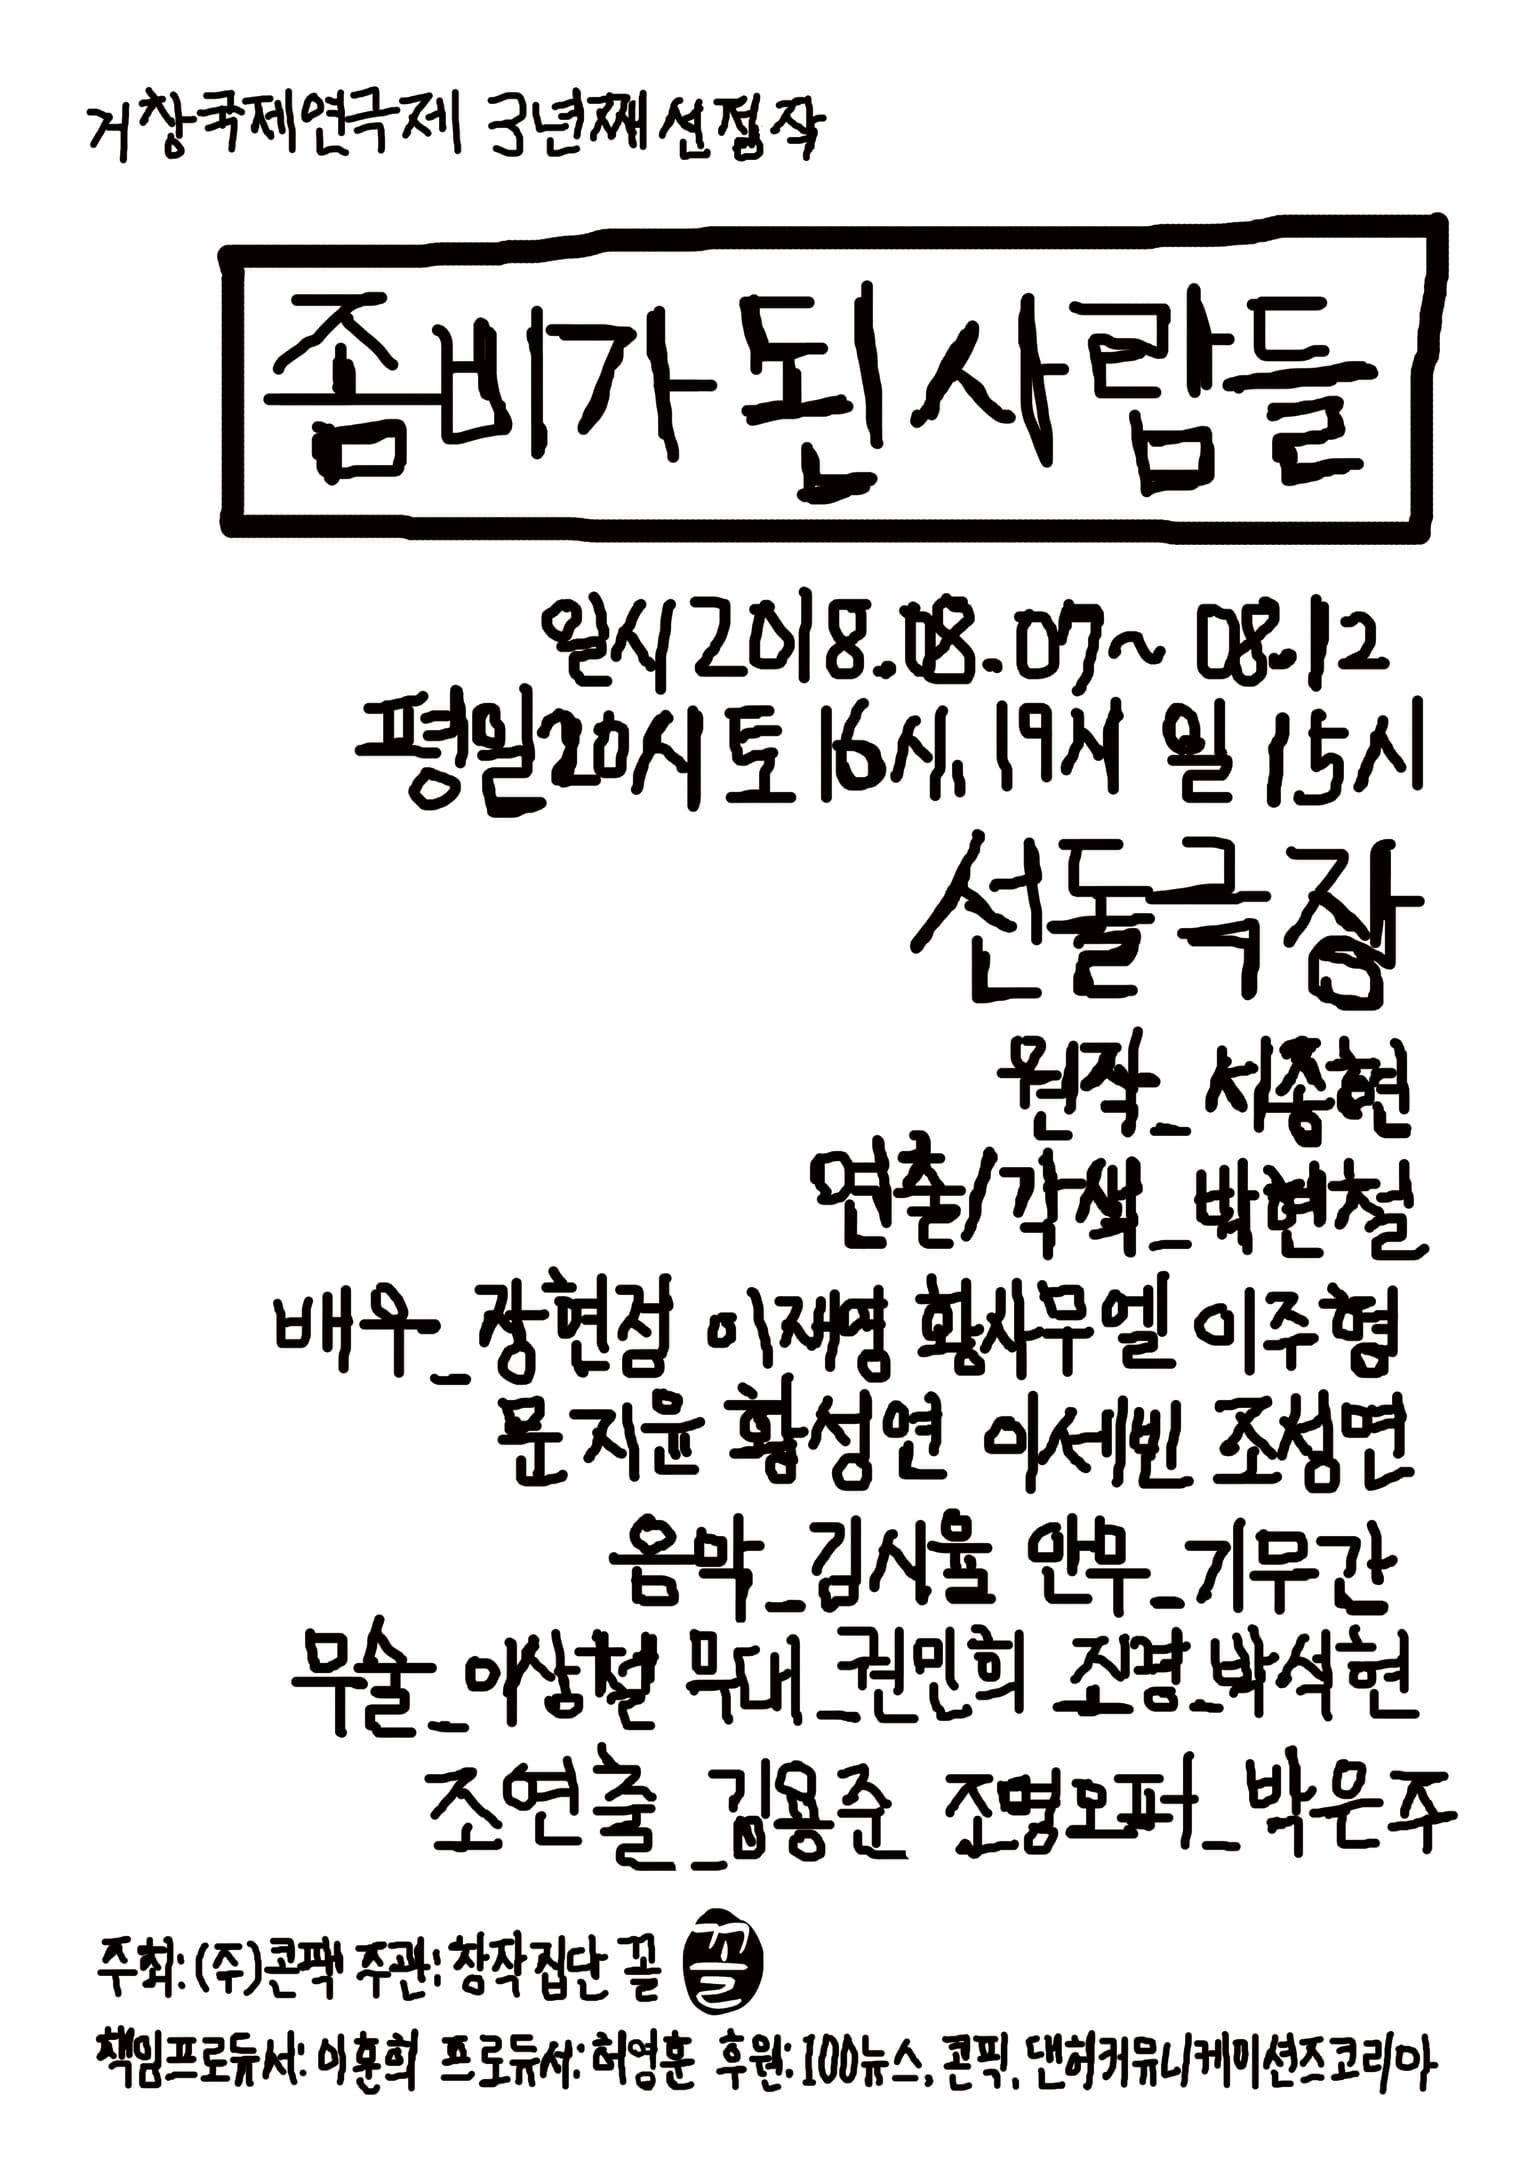 거창국제연극제 3년째 선정작
좀비가 된 사람들
일시 2018.08.07~ 08.12
평일20시 토 16시, 19시 일 15시
선돌극장
원작_서종현
연출/각색_박현철
배우_장현점 이재영 황사무엘 이주형
문지윤 황성연 이세빈 조성면
음악_김시율 안무_기무간
무술_이상철 무대_권민희 조명_박석현
조연출_김용준 조명오퍼_박은주
주최: (주)콘팩 주관: 창작집단 꼴 꼴
책임프로듀서: 이훈희 프로듀서: 허영훈 후원: 100뉴스, 콘픽, 댄허커뮤니케이션즈코리아